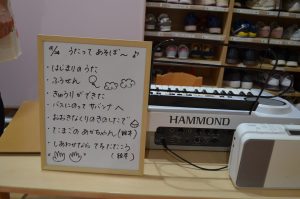 うたって あそぼ〜 ♪
・はじまりのうた
・ふうせん
・きゅうりができた
・バスにのって サバンナ へ
・おおきなくりのきのしたで
・たまごのあかちゃん (絵本)
・しあわせなら てをたたこう
(絵本)
HAMMOND